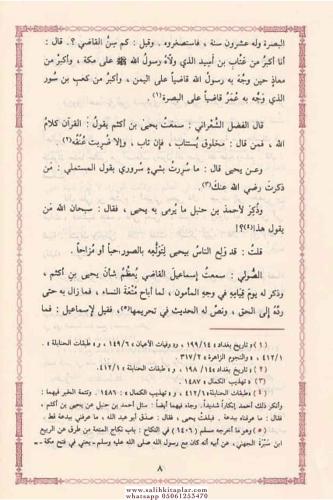 البصرة وله عشرون سنة ، فاستصغروه . وقيل : كم سِنُّ القاضي ؟ . قال :
أنا أكبرُ من عَتَّاب بن أَسِيد الذي ولاَّهُ رسولُ الله ﷺ على مكة ، وأكبرُ من
معاذٍ حين وجَّهَ به رسولُ الله قاضياً على اليمن ، وأكبرُ من كعبِ بن سُور
الذي وَجَّه به عُمَرُ قاضياً على البصرة(١) .
قال الفضل الشَّعْراني : سمعتُ يحيى بن أكثم يقولُ : القرآن كلامُ
الله ، فمن قال : مَخلوق يُستتاب ، فإن تاب ، وإلا ضُربت عُنُقُه(٢)
وعـن يحيى قال : ما سُررتُ بشيءٍ سُروري بقول المستملي : مَن
ذكرتَ رضي الله عنكَ(٣) .
وذُكِرَ لأحمدَ بن حنبل ما يُرمى به يحيى ، فقال : سبحان الله مَن
يقولُ هذا(٤) ؟!
قلتُ : قد وَلِع الناسُ بيحيى لِتَوَلُّعِه بالصور، حباً أو مُزاحاً .
الصُّولي : سمعتُ إسماعيلَ القاضي يُعظِّمُ شأنَ يحيى بن أكثم ،
وذكر له يومَ قيامِهِ في وجهِ المأمون ، لما أباحَ مُتْعَةَ النساء ، فما زال به حتى
ردَّه إلى الحق ، ونصَّ له الحديث في تحريمها(٥) ، فقيل لإسماعيل : فما
(١) « تاريخ بغداد » ١٩٩/١٤ ، و« وفيات الأعيان » ١٤٩/٦ ، و« طبقات الحنابلة »
٤١٢/١ ، و« النجوم الزاهرة » ٣١٧/٢ .
(٢) « تاريخ بغداد » ١٩٨/١٤ ، و« طبقات الحنابلة » ٤١٢/١ .
(٣) « تهذيب الكمال » : ١٤٨٧ .
(٤) « طبقات الحنابلة » ٤١٢/١ ، و« تهذيب الكمال » : ١٤٨٦ . وتتمة الخبر فيهما :
وأنكر ذلك أحمد إنكاراً شديداً. وجاء فيهما أيضاً : سئل أحمد بن حنبل عن يحيى بن أكثم ،
فقال : ما عرفناه ببدعة ، فبلغتْ يحيى ، فقال : صدق أبو عبد الله ، ما عرفني ببدعة قط .
(٥) وهو ما أخرجه مسلم (١٤٠٦) في النكاح : باب نكاح المتعة من طرق عن الربيع
ابن سَبْرَة الجهني، عن أبيه أنه كان مع رسول الله صلى الله عليه وسلم ـ يعني في فتح مكة ـ
٨
www.salihkitaplar.com
whatsapp 05061253470